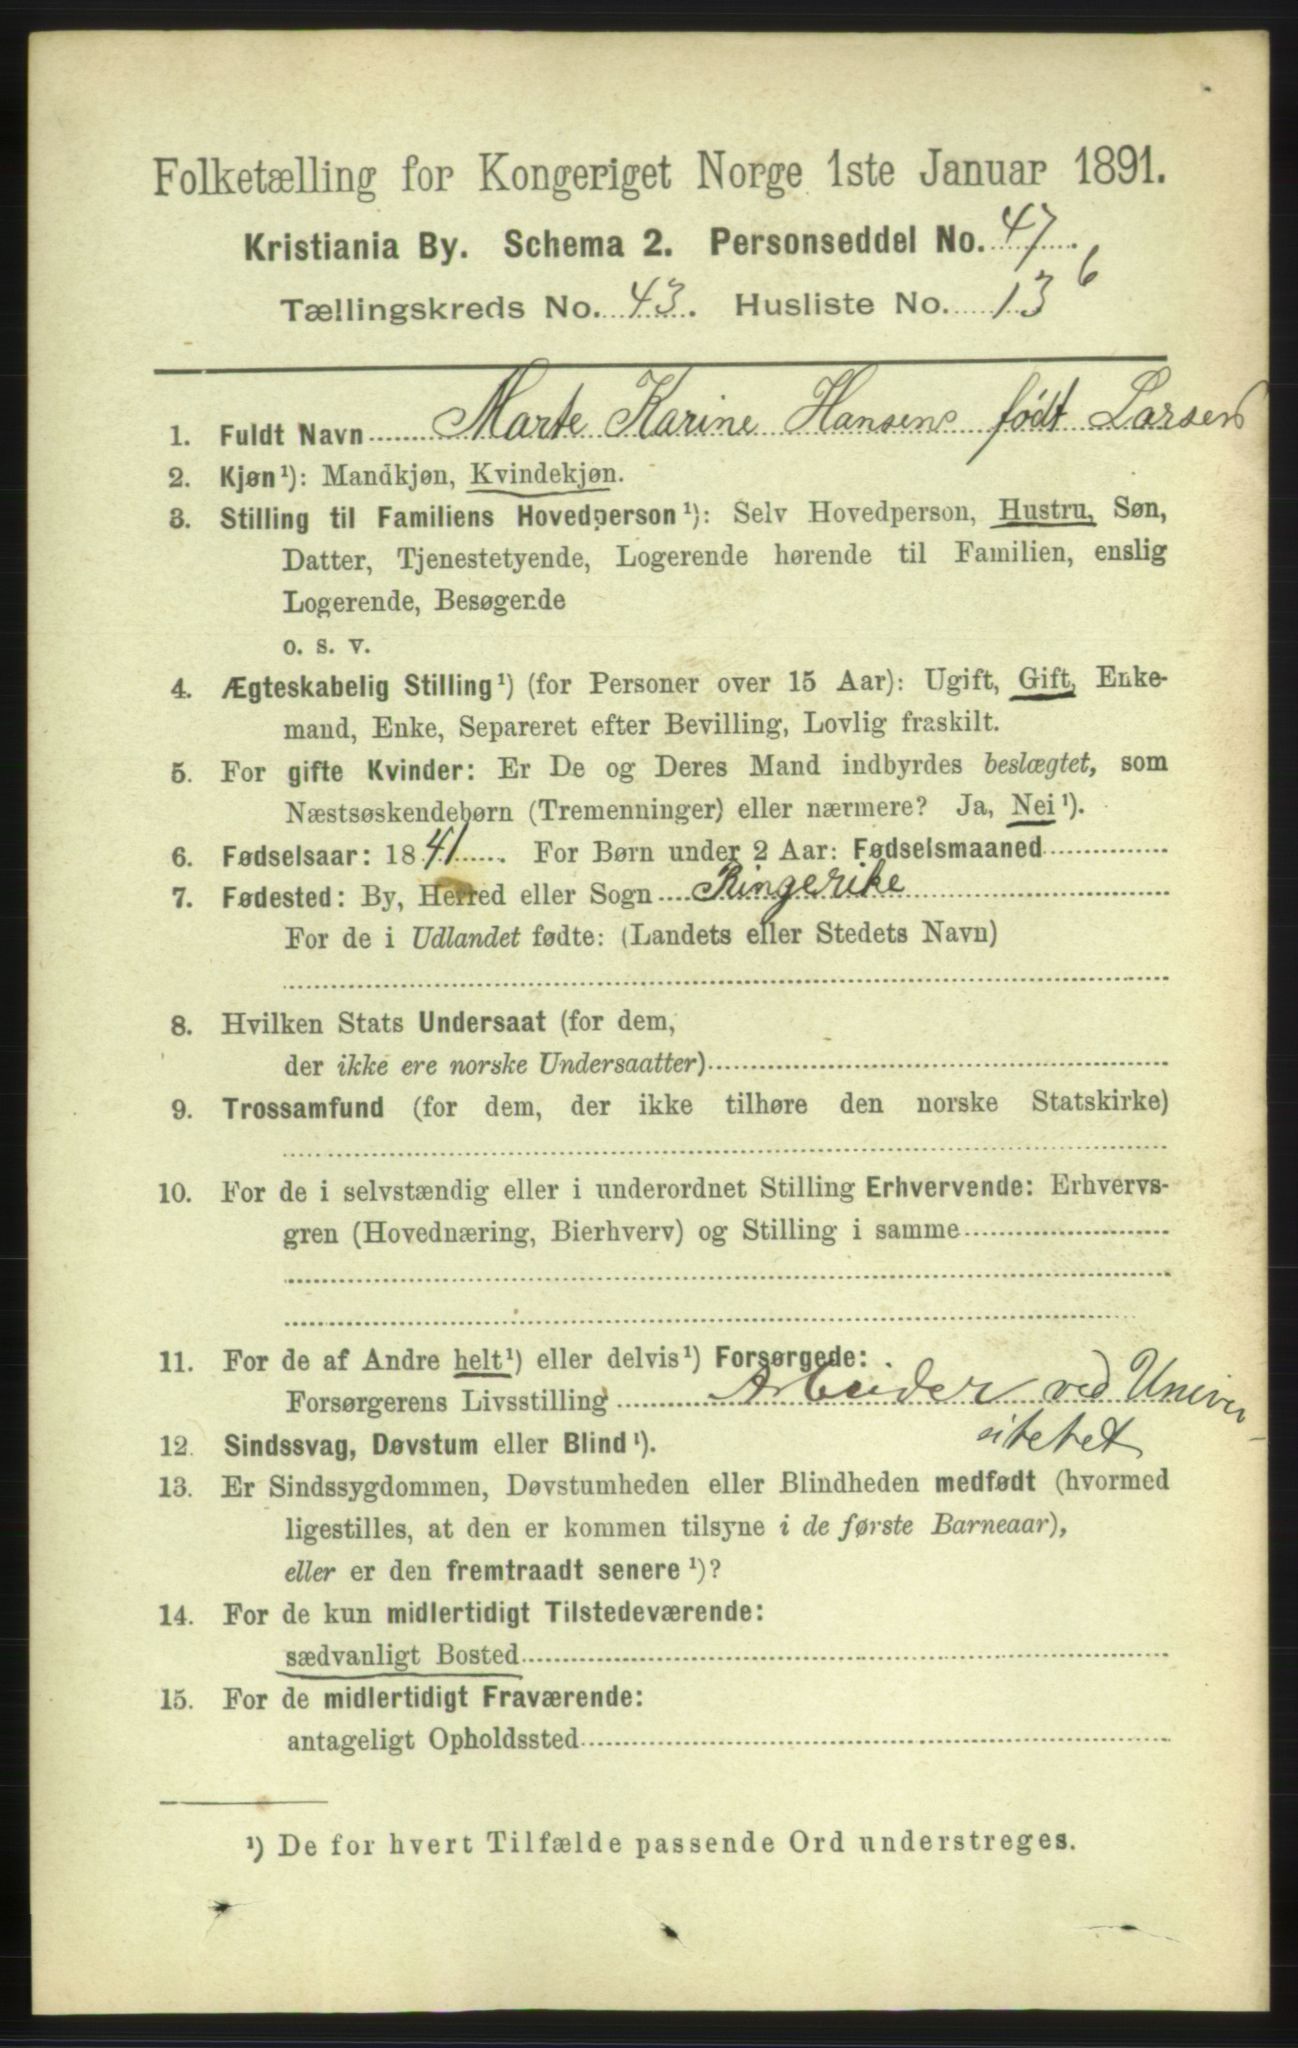 Folketælling for Kongeriget Norge 1ste Januar 1891.
Kristiania By. Schema 2. Personseddel No. 47.
Tællingskreds No. 43. Husliste No. 13 6
1. Fuldt Navn Marte Karine Hansen født Larsen
2. Kjøn¹): Mandkjøn, Kvindekjøn.
3. Stilling til Familiens Hovedperson¹): Selv Hovedperson, Hustru, Søn,
Datter, Tjenestetyende, Logerende hørende til Familien, enslig
Logerende, Besøgende
o. s. v.
4. Ægteskabelig Stilling¹) (for Personer over 15 Aar): Ugift, Gift, Enke-
mand, Enke, Separeret efter Bevilling, Lovlig fraskilt.
5. For gifte Kvinder: Er De og Deres Mand indbyrdes beslægtet, som
Næstsøskendebørn (Tremenninger) eller nærmere? Ja, Nei¹).
6. Fødselsaar: 1841. For Børn under 2 Aar: Fødselsmaaned
7. Fødested: By, Herred eller Sogn Ringerike
For de i Udlandet fødte: (Landets eller Stedets Navn)
8. Hvilken Stats Undersaat (for dem,
der ikke ere norske Undersaatter)
9. Trossamfund (for dem, der ikke tilhøre den norske Statskirke)
10. For de i selvstændig eller i underordnet Stilling Erhvervende: Erhvervs-
gren (Hovednæring, Bierhverv) og Stilling i samme
11. For de af Andre helt¹) eller delvis¹) Forsørgede:
Forsørgerens Livsstilling Arbeider ved Univer-
sitetet
12. Sindssvag, Døvstum eller Blind¹).
13. Er Sindssygdommen, Døvstumheden eller Blindheden medfødt (hvormed
ligestilles, at den er kommen tilsyne i de første Barneaar),
eller er den fremtraadt senere¹)?
14. For de kun midlertidigt Tilstedeværende:
sædvanligt Bosted
15. For de midlertidigt Fraværende:
antageligt Opholdssted
¹) De for hvert Tilfælde passende Ord understreges.